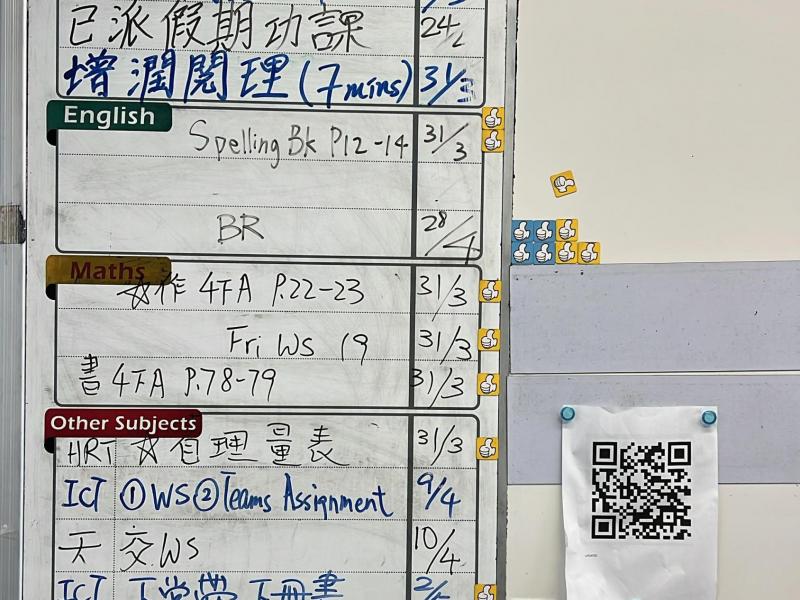 已派假期功課 24/2
增潤閱理(7mins) 31/3
English
Spelling Bk P12-14 31/3
BR 28/4
Maths
☆作 4下A P.22-23 31/3
Fri WS 19 31/3
書 4下A P.78-79 31/3
Other Subjects
HRT ☆自理量表 31/3
ICT ①WS②Teams Assignment 9/4
天 交WS 10/4
ICT 下堂帶下冊書